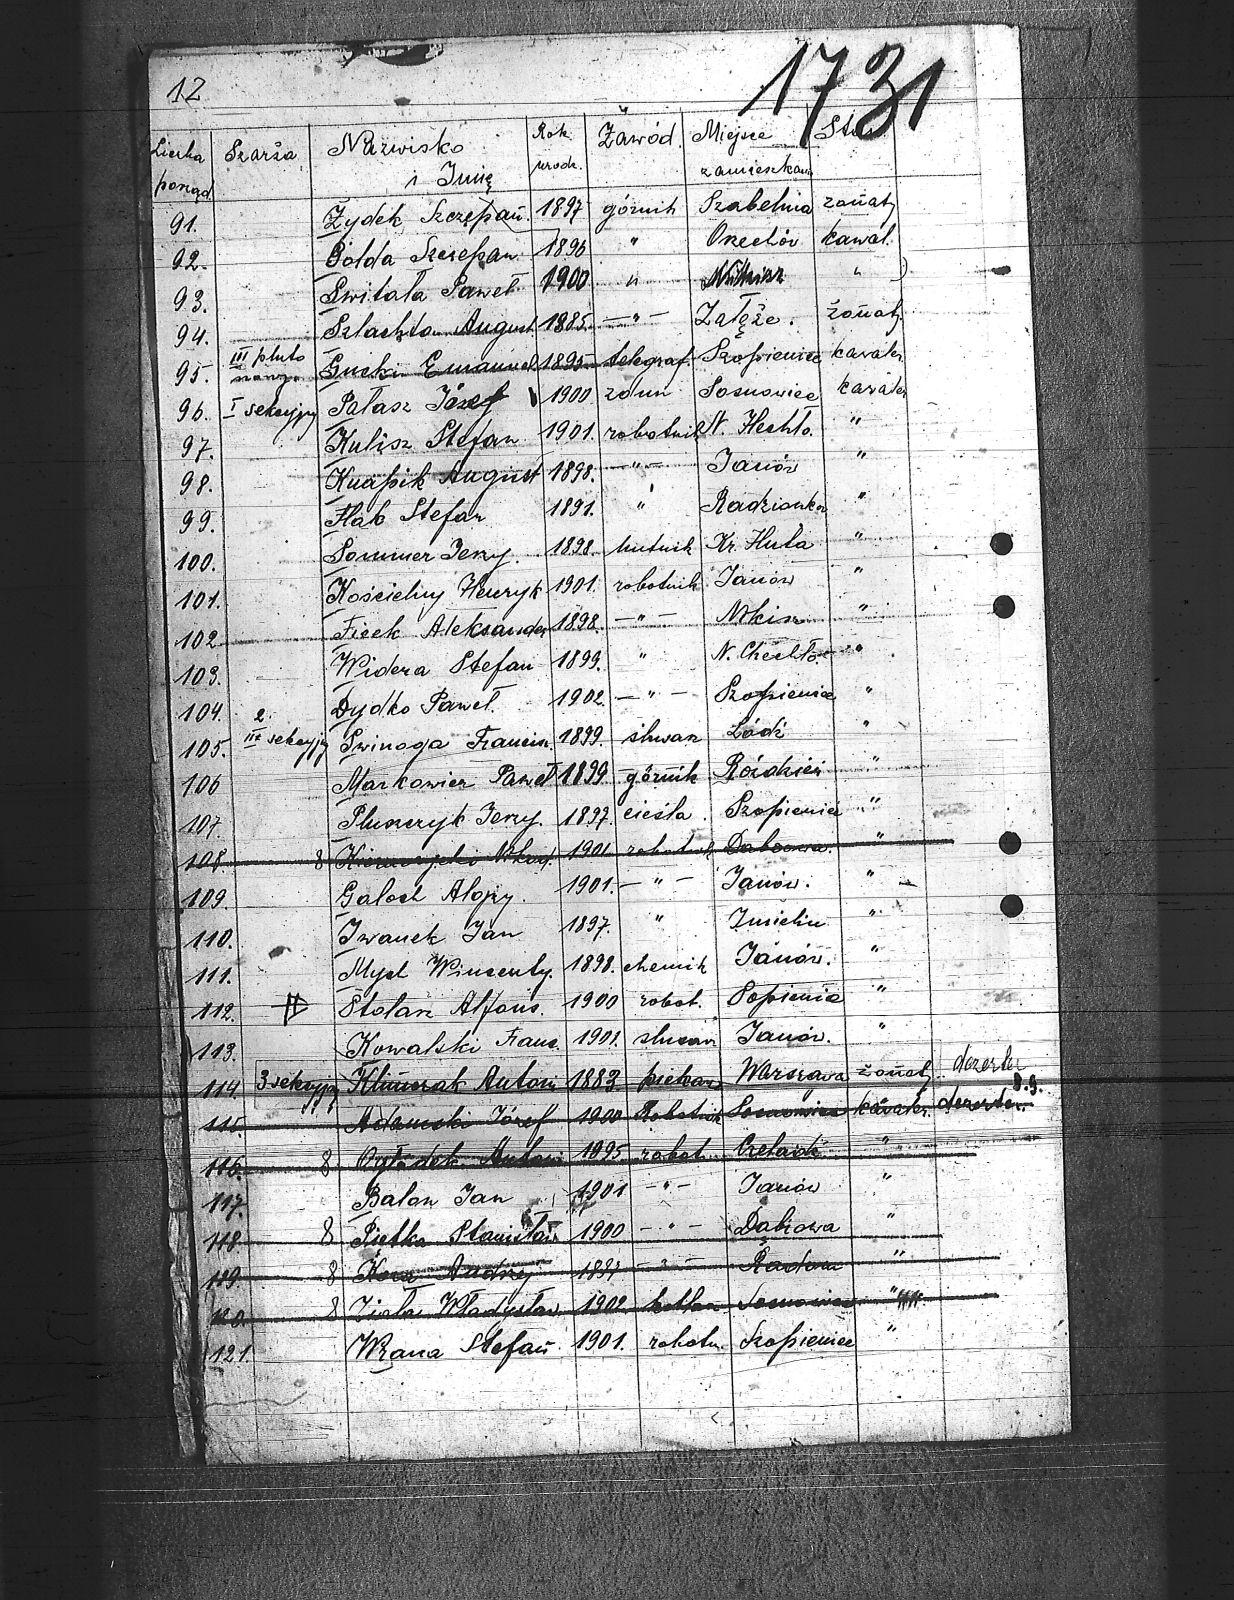 12
1731
Liczba porząd. Szarża Nazwisko i Imię Rok urodz. Zawód Miejsce zamieszkan.
91. Żydek Szczepan. 1897 górnik Szabelnia żonaty
92. Gołda Szczepan 1896 " Orzechów kawal.
93. Świtała Paweł 1900 " "
94. Szlachta August 1885. — " — Załęże. żonaty
95. III pluto nowy Emanuel 1895 telegraf. Szopienice kawaler
96. I sekcyjny Pałasz Józef 1900 Sosnowiec kawaler
97. Kulisz Stefan 1901. robotnik N. Hechło. "
98. Knapik August 1898. — " — Janów "
99. Hab Stefan 1891. " Radzionka "
100. Sommer Jerzy. 1898. hutnik Kr. Huta "
101. Kościelny Henryk 1901. robotnik Janów "
102 Ficek Aleksander 1898. — " — "
103. Widera Stefan 1899. " N. Chechło. "
104. Dydko Paweł. 1902. — " — Szopienice "
105. 2 III sekcyjny Swinoga Francisz. 1899. Łódź "
106 Markowicz Paweł 1899 górnik Roździeń "
107 Pluszczyk Jerzy. 1897. cieśla. Szopienice "
108. 8 1901 robotnik "
109. Galoch Alojzy. 1901. — " — Janów. "
110. Iwanek Jan 1897. " Imielin "
111. Myd Wincenty. 1898. chemik Janów. "
112. Stolarz Alfons. 1900 robot. Sopienice "
113. Kowalski Franc. 1901. Janów. "
114. 3 sekcyjny Klimczak Antoni 1883 piekarz Warszawa żonaty dezerter
115. Adamski Józef 1900 Robotnik Sosnowiec kawaler dezerter.
116. 8 Antoni 1895 robot. Czeladź "
117. Balon Jan 1901 — " — Janów "
118. 8 Pietka Stanisław 1900 — " — "
119. 8 Andrzej — " — Radom "
120. 8 Władysław 1902 Sosnowiec "
121. Wrana Stefan 1901. robotn. Szopienice "